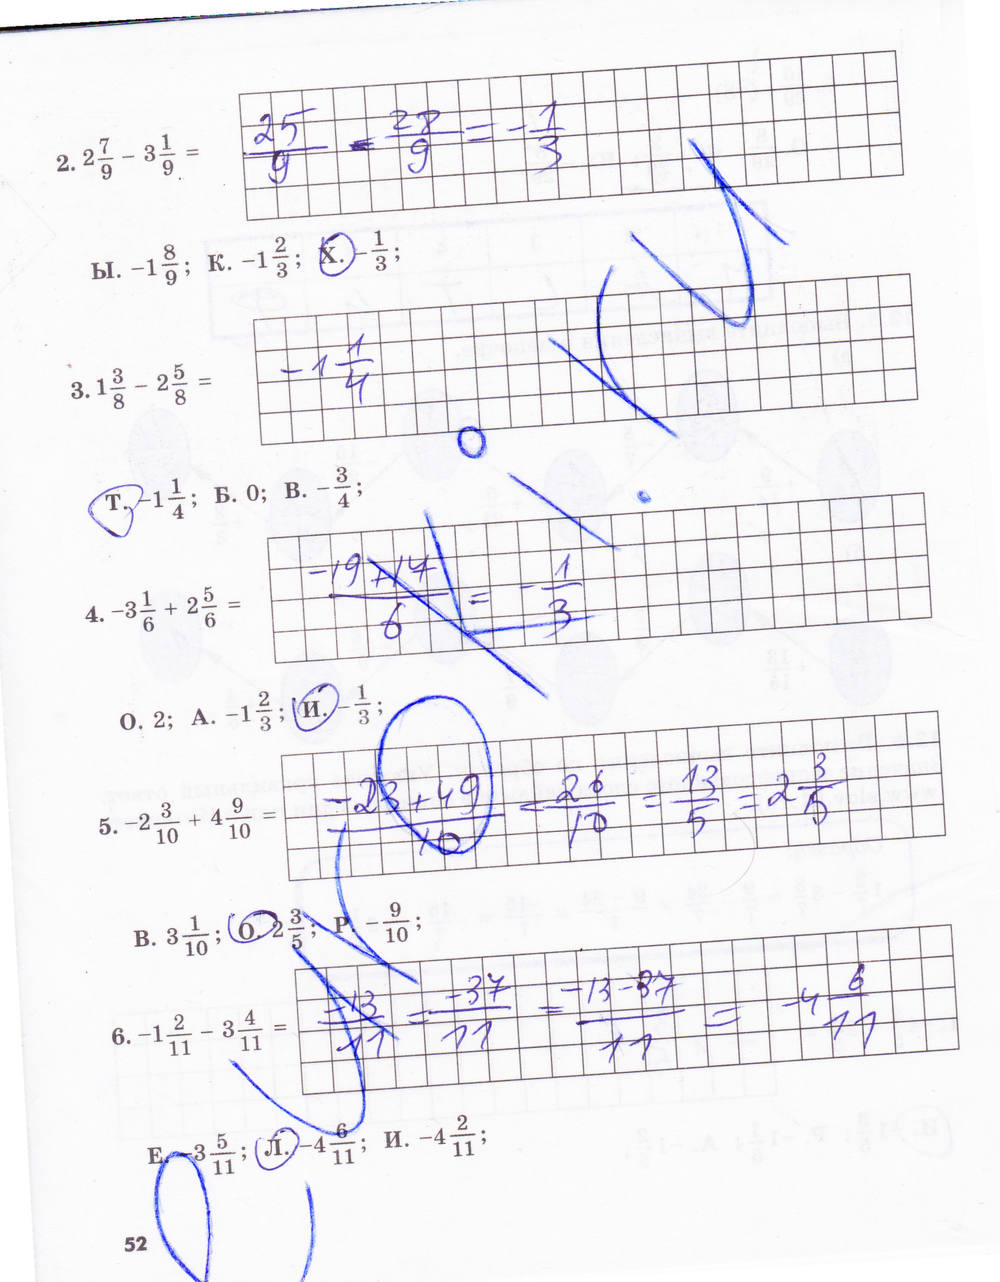 2. 2 7/9 − 3 1/9 = 25/9 - 28/9 = - 1/3
Ы. −1 8/9; К. −1 2/3; Х. −1/3;
3. 1 3/8 − 2 5/8 = - 1 1/4
Т. −1 1/4; Б. 0; В. −3/4;
4. −3 1/6 + 2 5/6 = -19+17/6 = - 1/3
О. 2; А. −1 2/3; И. −1/3;
5. −2 3/10 + 4 9/10 = -23+49/10 = 26/10 = 13/5 = 2 3/5
В. 3 1/10; О. 2 3/5; Р. −9/10;
6. −1 2/11 − 3 4/11 = -13/11 = -37/11 = -13-37/11 = -4 6/11
Е. −3 5/11; Л. −4 6/11; И. −4 2/11;
52